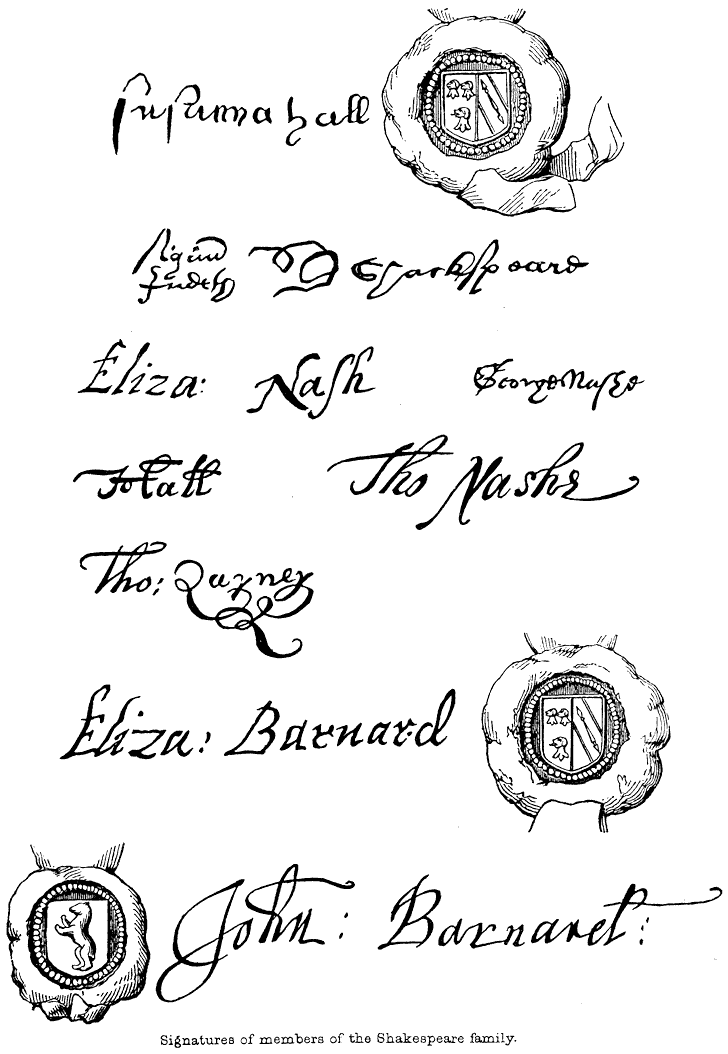 Susanna hall
Signum
Judeth Shackspeare
Eliza: Nash George Nashe
Jo Hall Tho Nashe
Tho: Quyney
Eliza: Barnard
John: Barnard:
Signatures of members of the Shakespeare family.